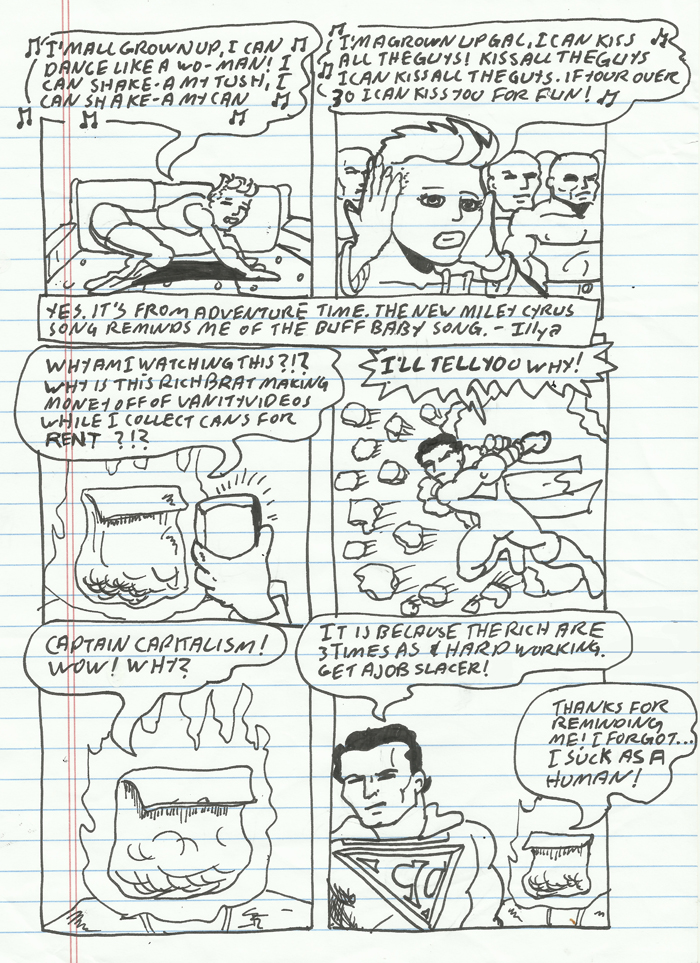 I'M ALL GROWN UP, I CAN
DANCE LIKE A WO-MAN! I
CAN SHAKE-A MY TUSH, I
CAN SHAKE-A MY CAN
I'M A GROWN UP GAL, I CAN KISS
ALL THE GUYS! KISS ALL THE GUYS
I CAN KISS ALL THE GUYS. IF YOUR OVER
30 I CAN KISS YOU FOR FUN!
YES, IT'S FROM ADVENTURE TIME. THE NEW MILEY CYRUS
SONG REMINDS ME OF THE BUFF BABY SONG. - Illya
WHY AM I WATCHING THIS?!?
WHY IS THIS RICH BRAT MAKING
MONEY OFF OF VANITY VIDEOS
WHILE I COLLECT CANS FOR
RENT ?!?
I'LL TELL YOU WHY!
CAPTAIN CAPITALISM!
WOW! WHY?
IT IS BECAUSE THE RICH ARE
3 TIMES AS HARD WORKING.
GET A JOB SLACER!
THANKS FOR
REMINDING
ME! I FORGOT...
I SUCK AS A
HUMAN!